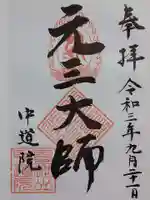 奉拝
令和三年九月二十一日
元三大師
中道院